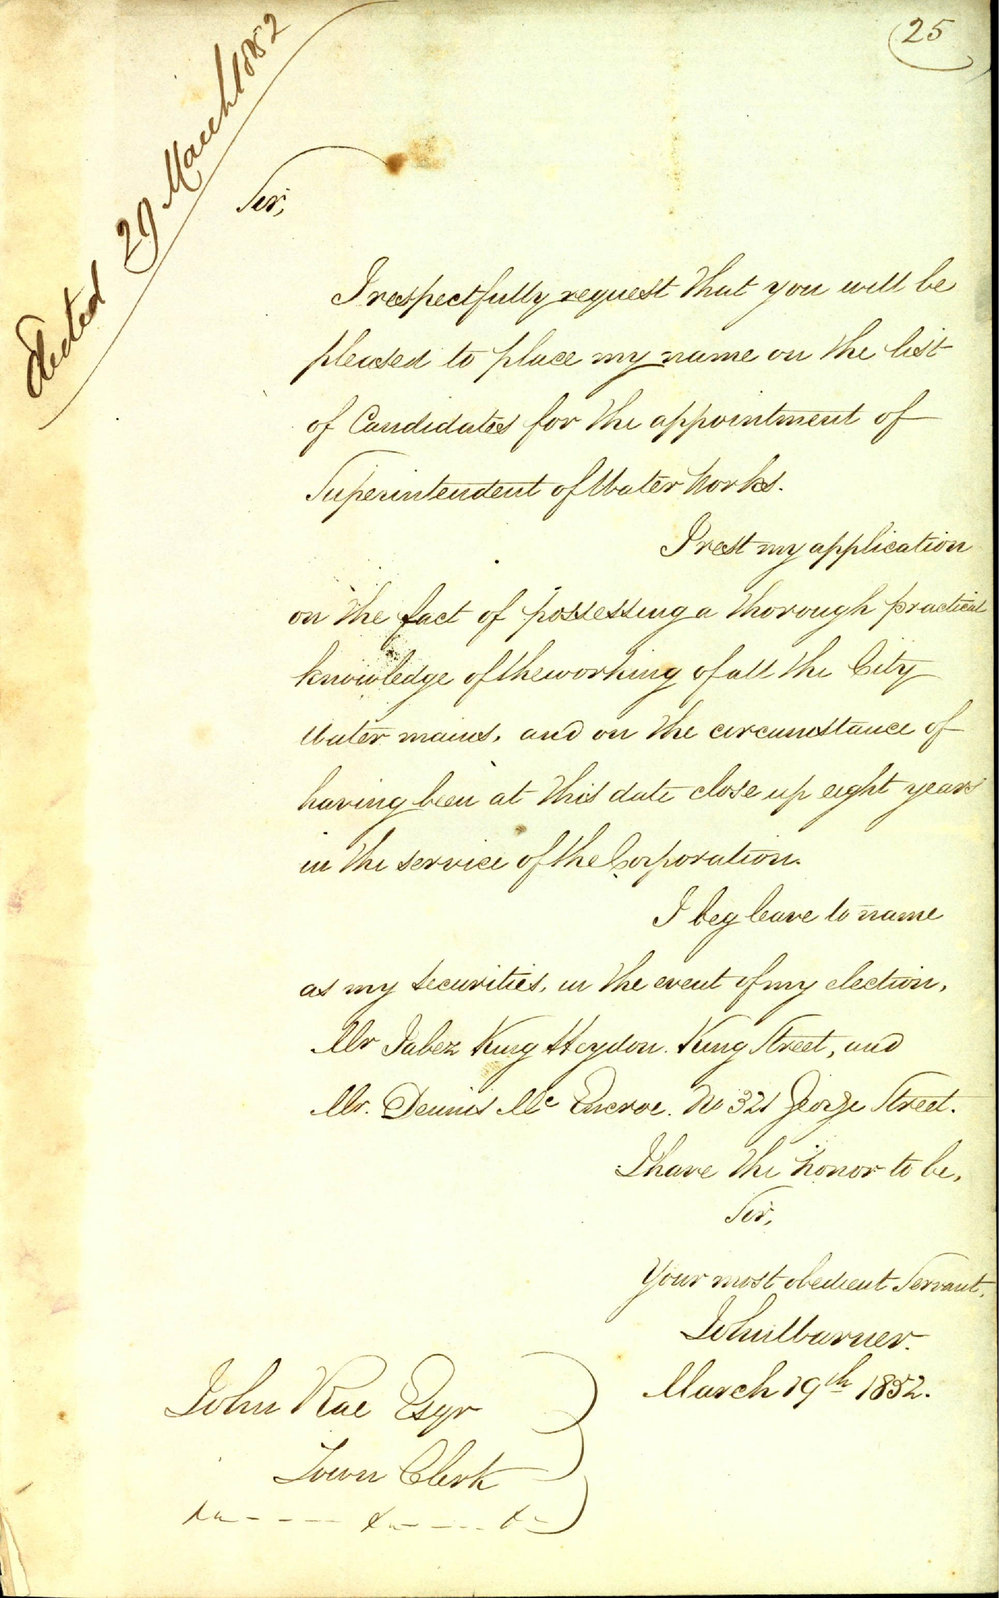 25
Elected 29 March 1852
Sir,
I respectfully request that you will be
pleased to place my name on the list
of Candidates for the appointment of
Superintendent of Water Works.
I rest my application
on the fact of possessing a thorough practical
knowledge of the working of all the City
Water mains, and on the circumstance of
having been at this date close up eight years
in the service of the Corporation.
I beg leave to name
as my securities, in the event of my election,
Mr Jabez King Heydon. King Street, and
Mr. Dennis Mc Encroe. No 321 George Street.
I have the honor to be,
Sir,
Your most obedient Servant,
John Warner.
March 19th 1852.
John Rae Esqr
Town Clerk